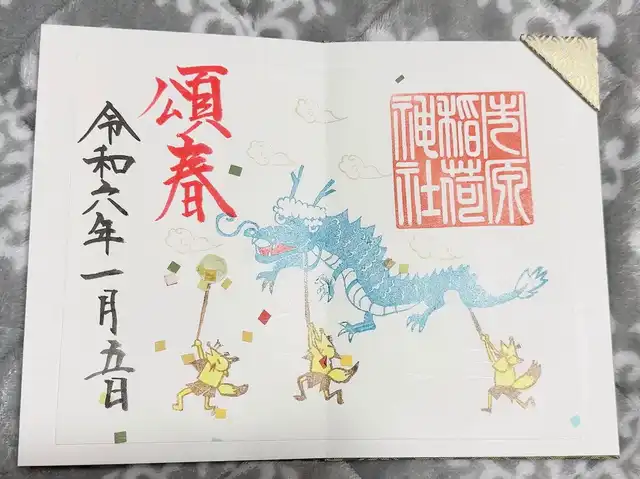 市原
稲荷
神社
頌春
令和六年一月五日